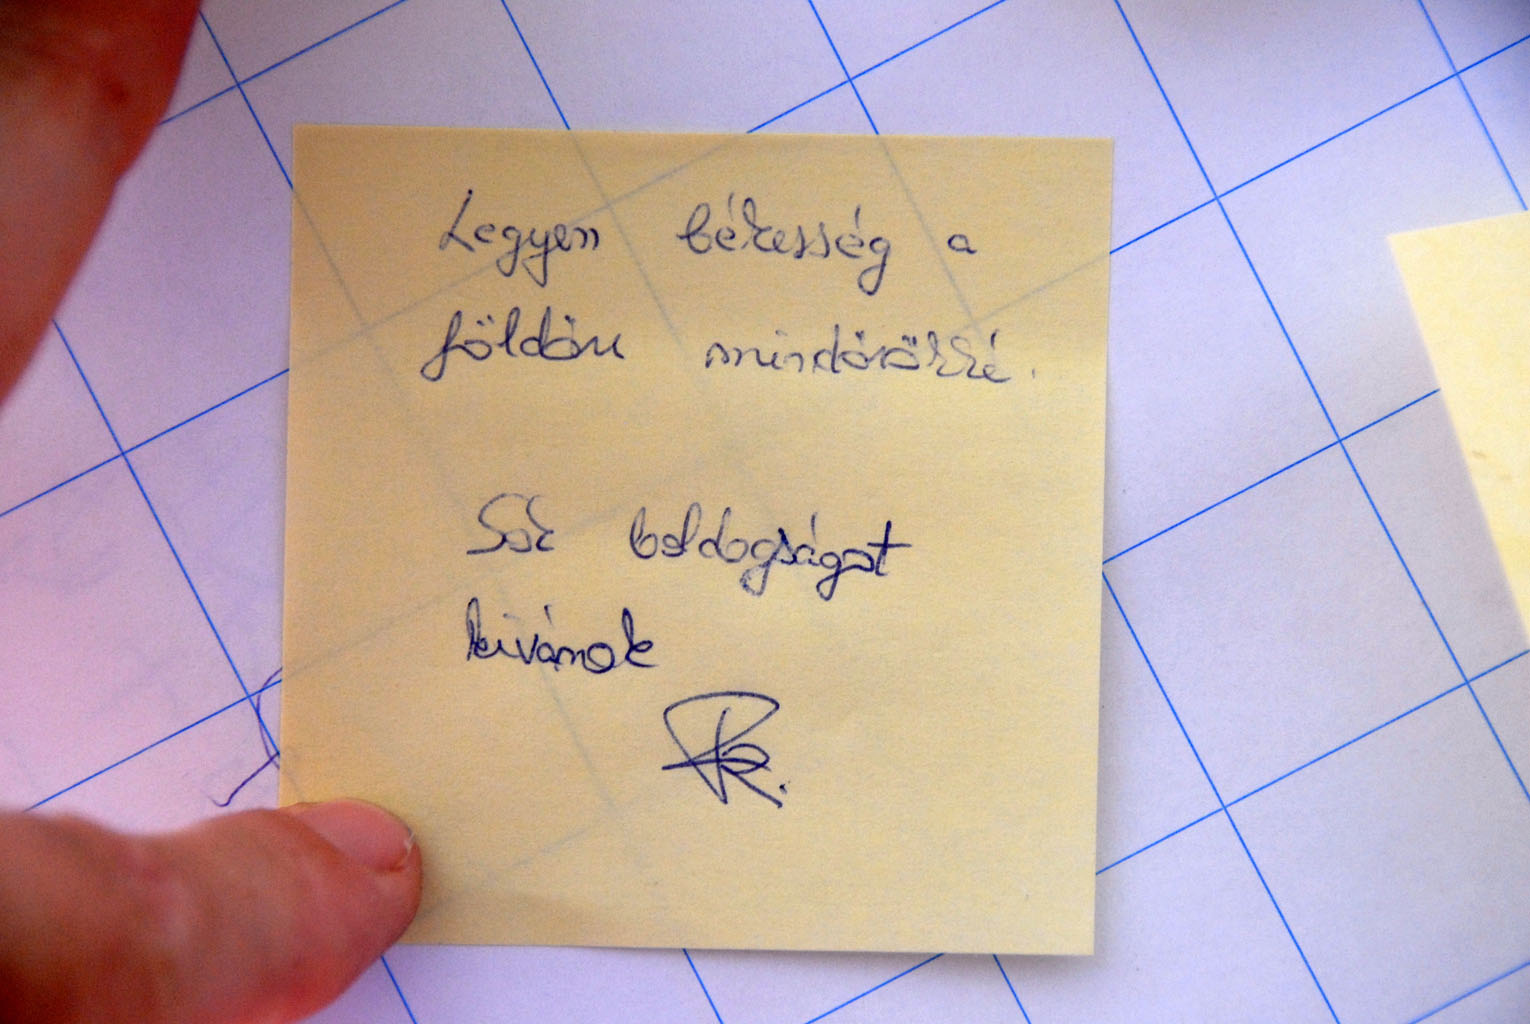 Legyen békesség a
földön mindörökké.
Sok boldogságot
kívánok